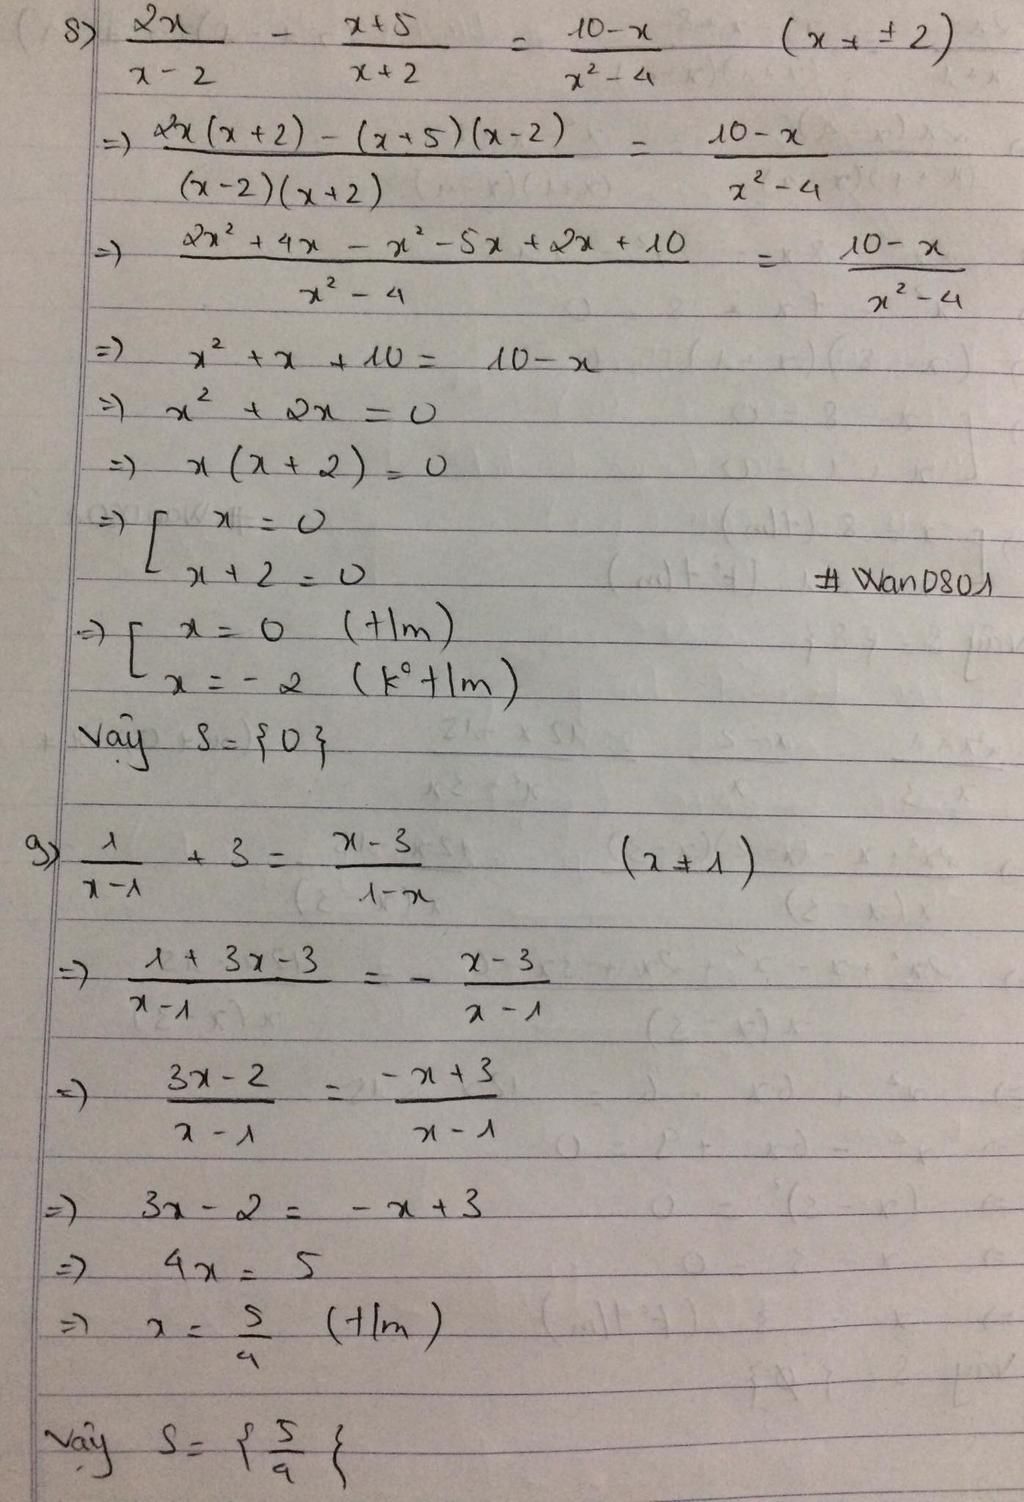 8) 2x/(x-2) - (x+5)/(x+2) = (10-x)/(x²-4) (x ≠ ±2)
=> (2x(x+2) - (x+5)(x-2))/((x-2)(x+2)) = (10-x)/(x²-4)
=> (2x² + 4x - x² - 5x + 2x + 10)/(x² - 4) = (10-x)/(x²-4)
=> x² + x + 10 = 10 - x
=> x² + 2x = 0
=> x(x+2) = 0
=> [ x = 0
x + 2 = 0
# Wan0801
=> [ x = 0 (t/m)
x = -2 (k° t/m)
Vậy S = {0}
9) 1/(x-1) + 3 = (x-3)/(1-x) (x ≠ 1)
=> (1 + 3x - 3)/(x-1) = - (x-3)/(x-1)
=> (3x-2)/(x-1) = (-x+3)/(x-1)
=> 3x - 2 = -x + 3
=> 4x = 5
=> x = 5/4 (t/m)
Vậy S = {5/4}